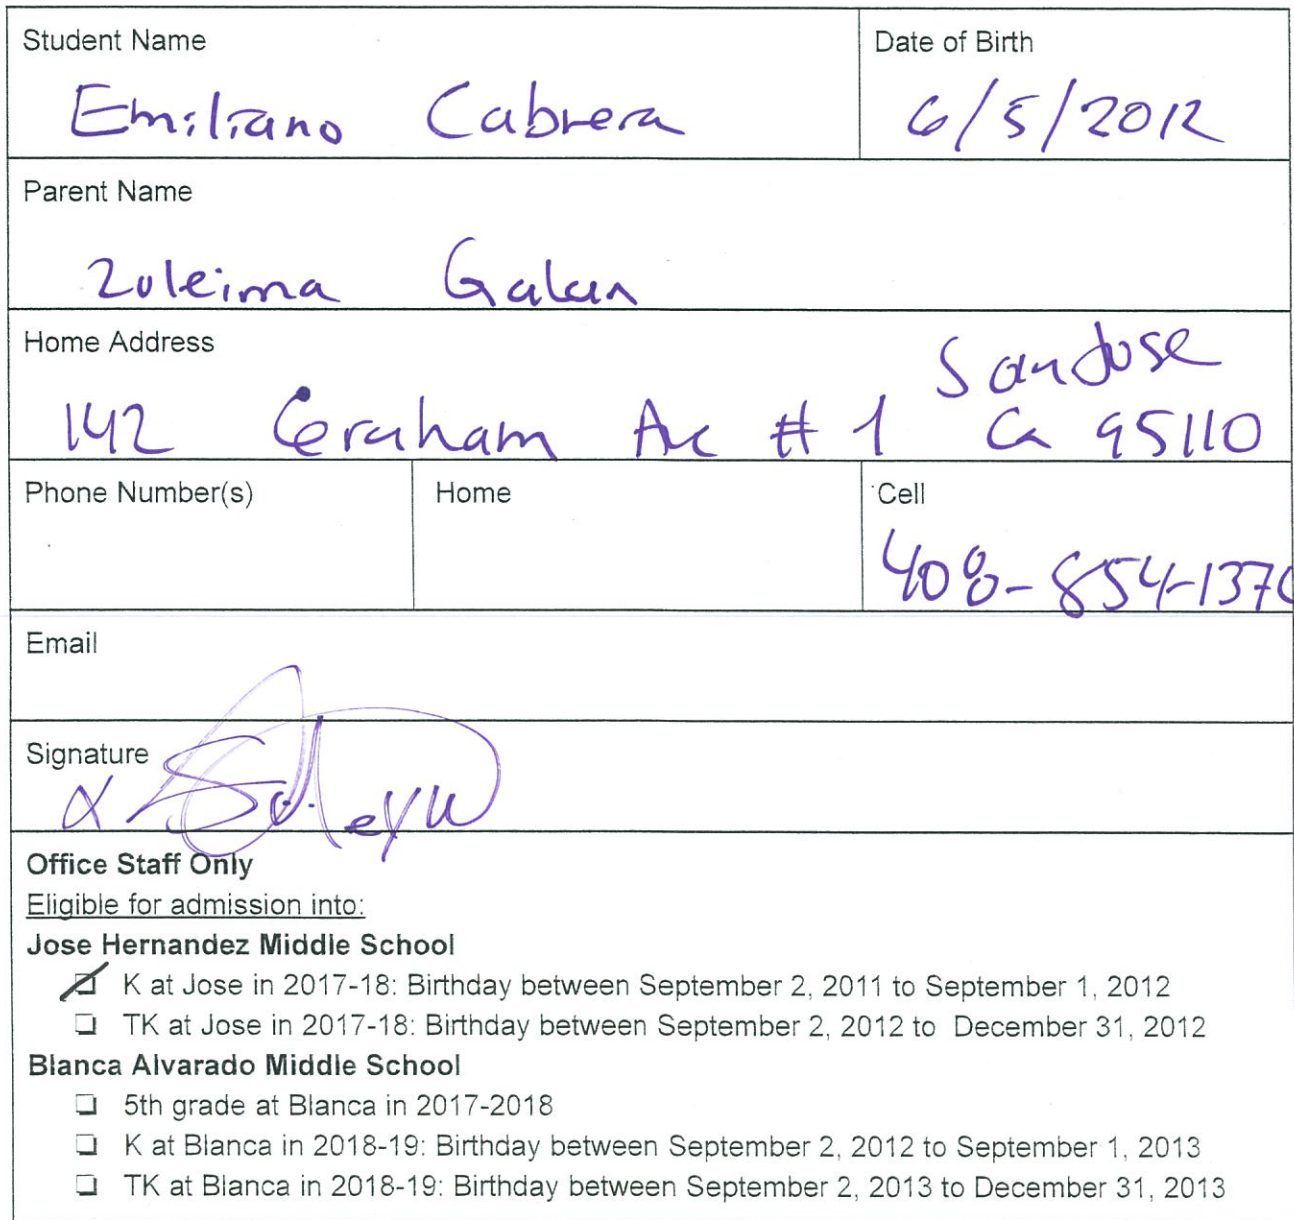 Student Name
Date of Birth
Emiliano Cabrera
6/5/2012
Parent Name
Zuleima Galan
Home Address
San Jose
142 Graham Av # 1 Ca 95110
Phone Number(s)
Home
Cell
408-854-1370
Email
Signature
X
Office Staff Only
Eligible for admission into:
Jose Hernandez Middle School
K at Jose in 2017-18: Birthday between September 2, 2011 to September 1, 2012
TK at Jose in 2017-18: Birthday between September 2, 2012 to December 31, 2012
Blanca Alvarado Middle School
5th grade at Blanca in 2017-2018
K at Blanca in 2018-19: Birthday between September 2, 2012 to September 1, 2013
TK at Blanca in 2018-19: Birthday between September 2, 2013 to December 31, 2013